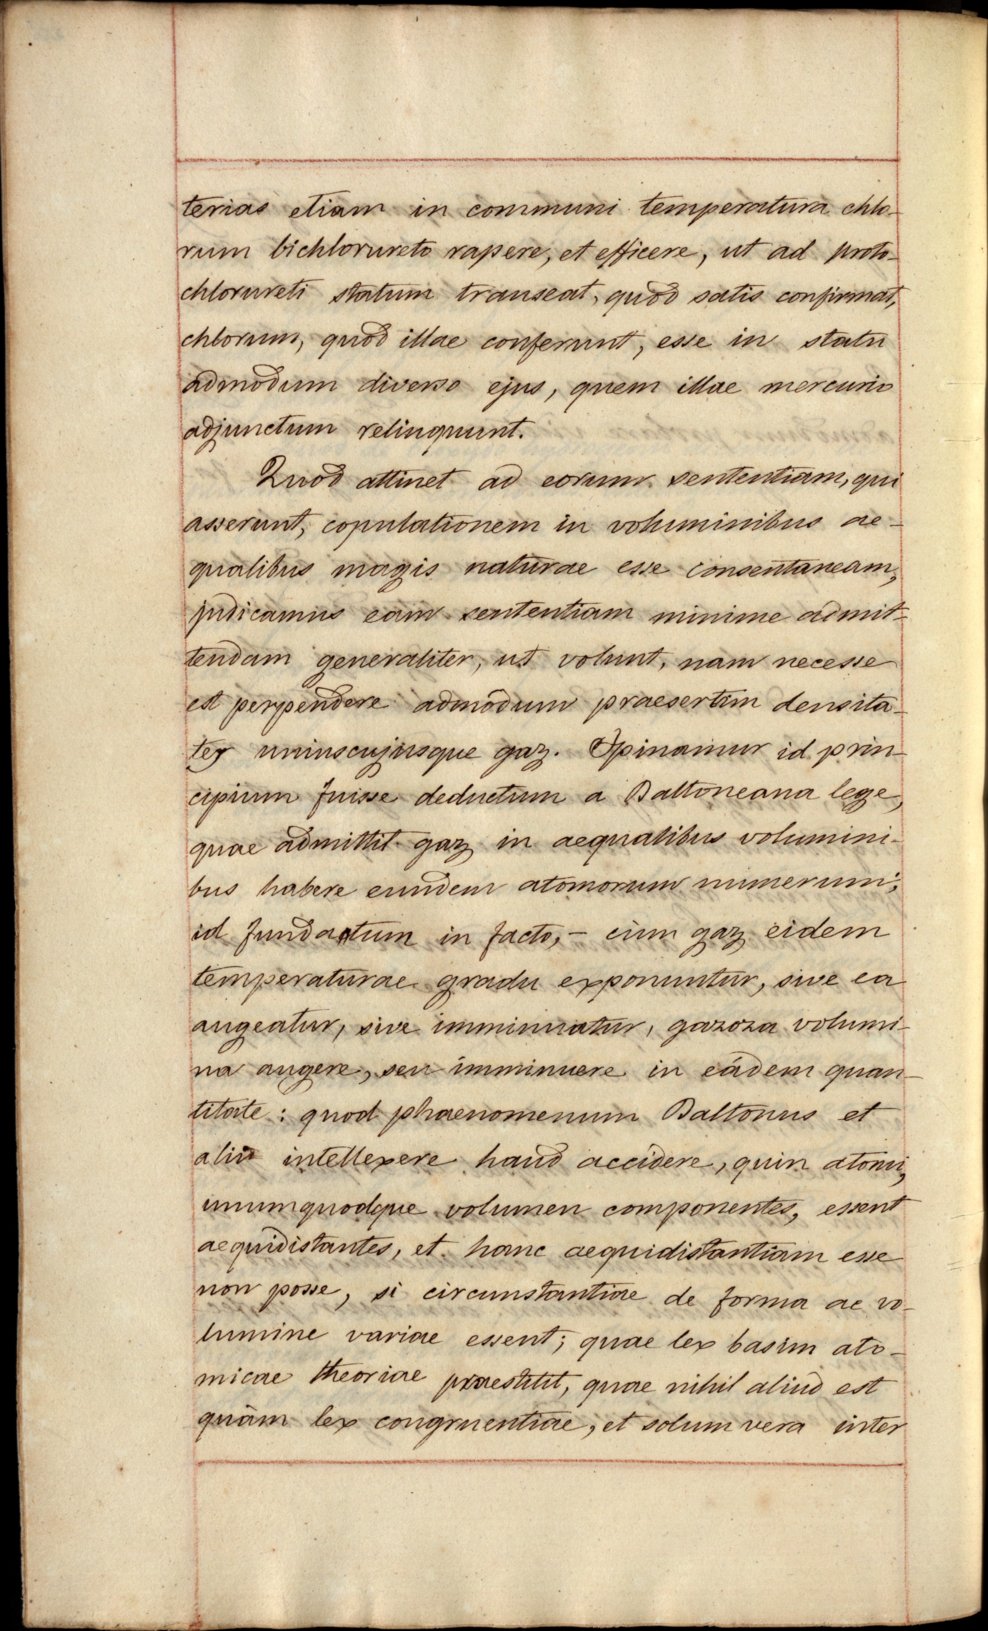 terias etiam in communi temperatura chlo-
rum bichlorureto rapere, et efficere, ut ad proto-
chlorureti statum transeat, quod satis confirmat,
chlorum, quod illae conferunt, esse in statu
admodum diverso ejus, quem illae mercurio
adjunctum relinquunt.
Quod attinet ad eorum sententiam, qui
asserunt, copulationem in voluminibus ae-
qualibus magis naturae esse consentaneam,
judicamus eam sententiam minime admit-
tendam generaliter, ut volunt, nam necesse
est perpendere admodum praesertim densita-
tes uniuscujusque gaz. Opinamur id prin-
cipium fuisse deductum a Daltoneana lege,
quae admittit gaz in aequalibus volumini-
bus habere eumdem atomorum numerum;
id fundatum in facto, - cum gaz eidem
temperaturae gradu exponuntur, sive ea
augeatur, sive imminuatur, gazoza volumi-
na augere, seu imminuere in eâdem quan-
titate: quod phaenomenum Daltonus et
alii intellexere haud accidere, quin atomi,
unumquodque volumen componentes, essent
aequidistantes, et hanc aequidistantiam esse
non posse, si circumstantiae de forma ac vo-
lumine variae essent; quae lex basim ato-
micae theoriae praestitit, quae nihil aliud est
quàm lex congruentiae, et solum vera inter